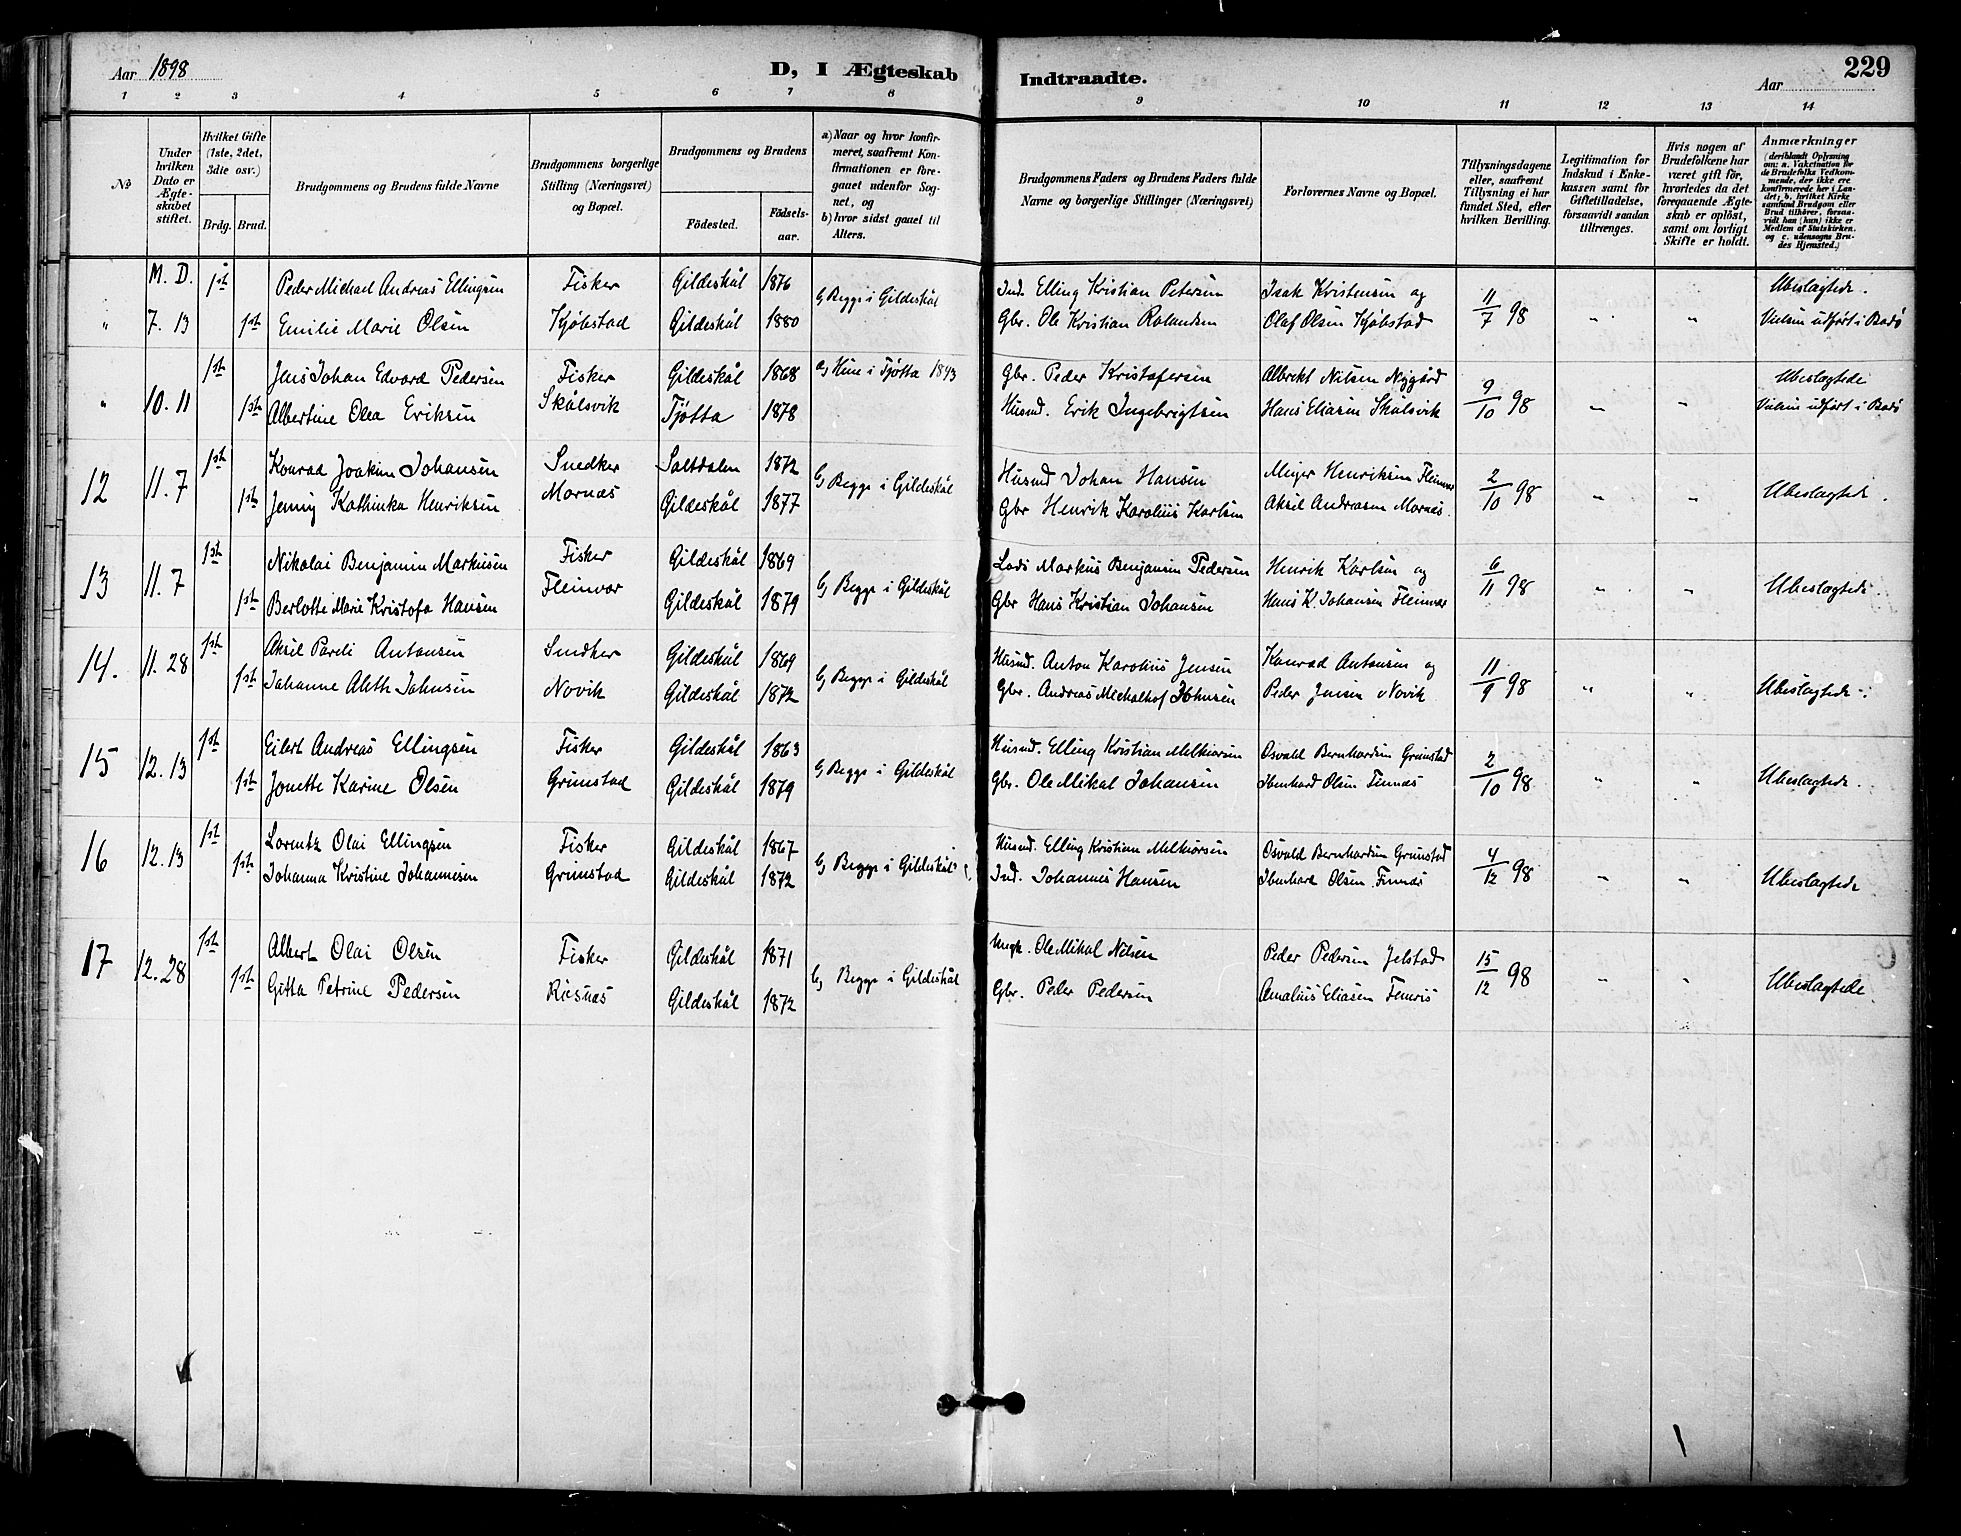 Aar 1898
D, I Ægteskab Indtraadte.
Aar
229
1 2 3 4 5 6 7 8 9 10 11 12 13 14
No
Under hvilken Dato er Ægteskabet stiftet.
Hvilket Gifte (1ste, 2det, 3die osv.)
Brdg. Brud.
Brudgommens og Brudens fulde Navne
Brudgommens borgerlige Stilling (Næringsvei) og Bopæl.
Brudgommens og Brudens
Fødested.
Fødselsaar.
a) Naar og hvor konfirmeret, saafremt Konfirmationen er foregaaet udenfor Sognet, og
b) hvor sidst gaaet til Alters.
Brudgommens Faders og Brudens Faders fulde Navne og borgerlige Stillinger (Næringsvei)
Forlovernes Navne og Bopæl.
Tillysningsdagene eller, saafremt Tillysning ei har fundet Sted, efter hvilken Bevilling.
Legitimation for Indskud i Enkekassen samt for Giftetilladelse, forsaavidt saadan tiltrænges.
Hvis nogen af Brudefolkene har været gift før, hvorledes da det foregaaende Ægteskab er opløst, samt om lovligt Skifte er holdt.
Anmærkninger
(deriblandt Oplysning om: a. Vakcination for de Brudefolks Vedkommende, der ikke ere konfirmerede her i Landet; b. hvilket Kirkesamfund Brudgom eller Brud tilhører, forsaavidt han (hun) ikke er Medlem af Statskirken, og c. udensogns Brudes Hjemsted.)
M. D.
1st Peder Michael Andreas Ellingsen Fisker Gildeskål 1876 b) Begge i Gildeskål Ind. Elling Kristian Petersen Isak Kristensen og 11/7 98 Ubeslægtede.
" 7. 13 1st Emilie Marie Olsen Kjøbstad Gildeskål 1880 Gbr. Ole Kristian Rolandsen Olaf Olsen Kjøbstad " " Vielsen udført i Bodø
1st Jens Johan Edvard Pedersen Fisker Gildeskål 1868 a) Hun i Tjøtta 1893 Gbr. Peder Kristofersen Albrekt Nilsen Nygård 9/10 98 Ubeslægtede
" 10. 11 1st Albertine Olea Eriksen Skålsvik Tjøtta 1878 Husmd. Erik Ingebrigtsen Hans Eliasen Skålsvik " " Vielsen udført i Bodø
12 11. 7 1st Konrad Joakim Johansen Snedker Saltdalen 1872 b) Begge i Gildeskål Husmd Johan Hansen Meyer Henriksen Fleinvær 2/10 98
1st Jenny Kathinka Henriksen Mornæs Gildeskål 1877 Gbr Henrik Karolius Karlsen Aksel Andreasen Mornæs. " " Ubeslægtede.
13 11. 7 1st Nikolai Benjamin Markusen Fisker Gildeskål 1869 b) Begge i Gildeskål Lods Markus Benjamin Pedersen Henrik Karlsen og 6/11 98
1st Berlotte Marie Kristofa Hansen Fleinvær Gildeskål 1879 Gbr Hans Kristian Johansen Hans K. Johansen Fleinvær " " Ubeslægtede
14. 11. 28 1st Aksel Pareli Antonsen Snedker Gildeskål 1869 b) Begge i Gildeskål Husmd. Anton Karolius Jensen Konrad Antonsen og 11/9 98
1st Johanne Aleth Johnsen Novik Gildeskål 1872 Gbr. Andreas Michalhof Johnsen Peder Jensen Novik " " Ubeslægtede
15 12. 13 1st Eilert Andreas Ellingsen Fisker Gildeskål 1863 b) Begge i Gildeskål Husmd. Elling Kristian Melkiorsen Osvald Bernhardsen Grimstad 2/10 98
1st Jonette Karine Olsen Grimstad Gildeskål 1879 Gbr. Ole Mikal Johansen Ibenhard Olsen Finnæs " " Ubeslægtede.
16 12. 13 1st Lorentz Olai Ellingsen Fisker Gildeskål 1867 b) Begge i Gildeskål Husmd. Elling Kristian Melkiorsen Osvald Bernhardsen Grimstad 4/12 98
1st Johanna Kristine Johannesen Grimstad Gildeskål 1872 Ind. Johannes Hansen Ibenhard Olsen Finnæs " " Ubeslægtede
17 12. 28 1st Albert Olai Olsen Fisker Gildeskål 1871 b) Begge i Gildeskål Ungk. Ole Mikal Nilsen Peder Pedersen Jelstad 15/12 98
1st Gitta Petrine Pedersen Risnæs Gildeskål 1872 Gbr. Peder Pedersen Amalius Eliasen Femris " " Ubeslægtede